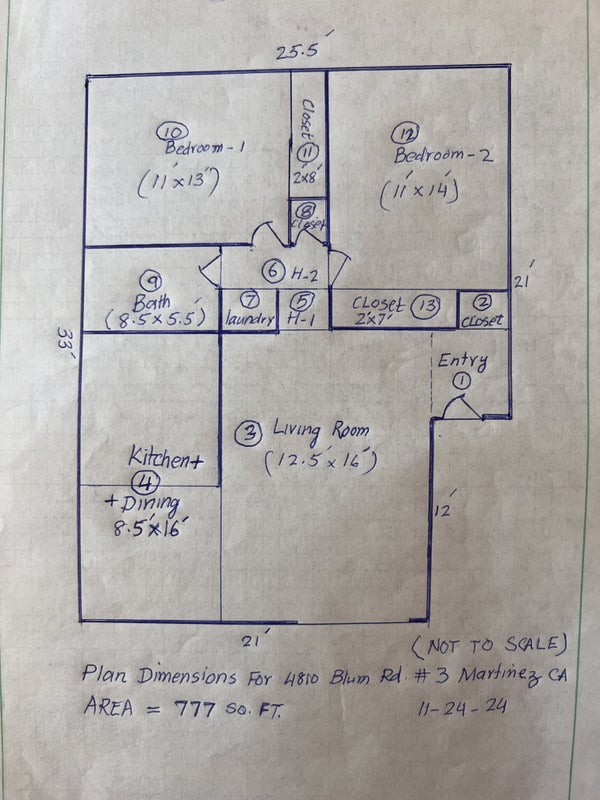 25.5'
10
Bedroom-1
(11'x13')
Closet 11 2'x8'
12
Bedroom-2
(11'x14')
8
Closet
6 H-2
9
Bath
(8.5'x5.5')
7
laundry
5
H-1
Closet 13
2'x7'
2
Closet
21'
33'
Entry
1
3 Living Room
(12.5'x16')
Kitchen+
4
+Dining
8.5'x16'
12'
21'
(NOT TO SCALE)
Plan Dimensions For 4810 Blum Rd. #3 Martinez CA
AREA = 777 SQ. FT. 11-24-24